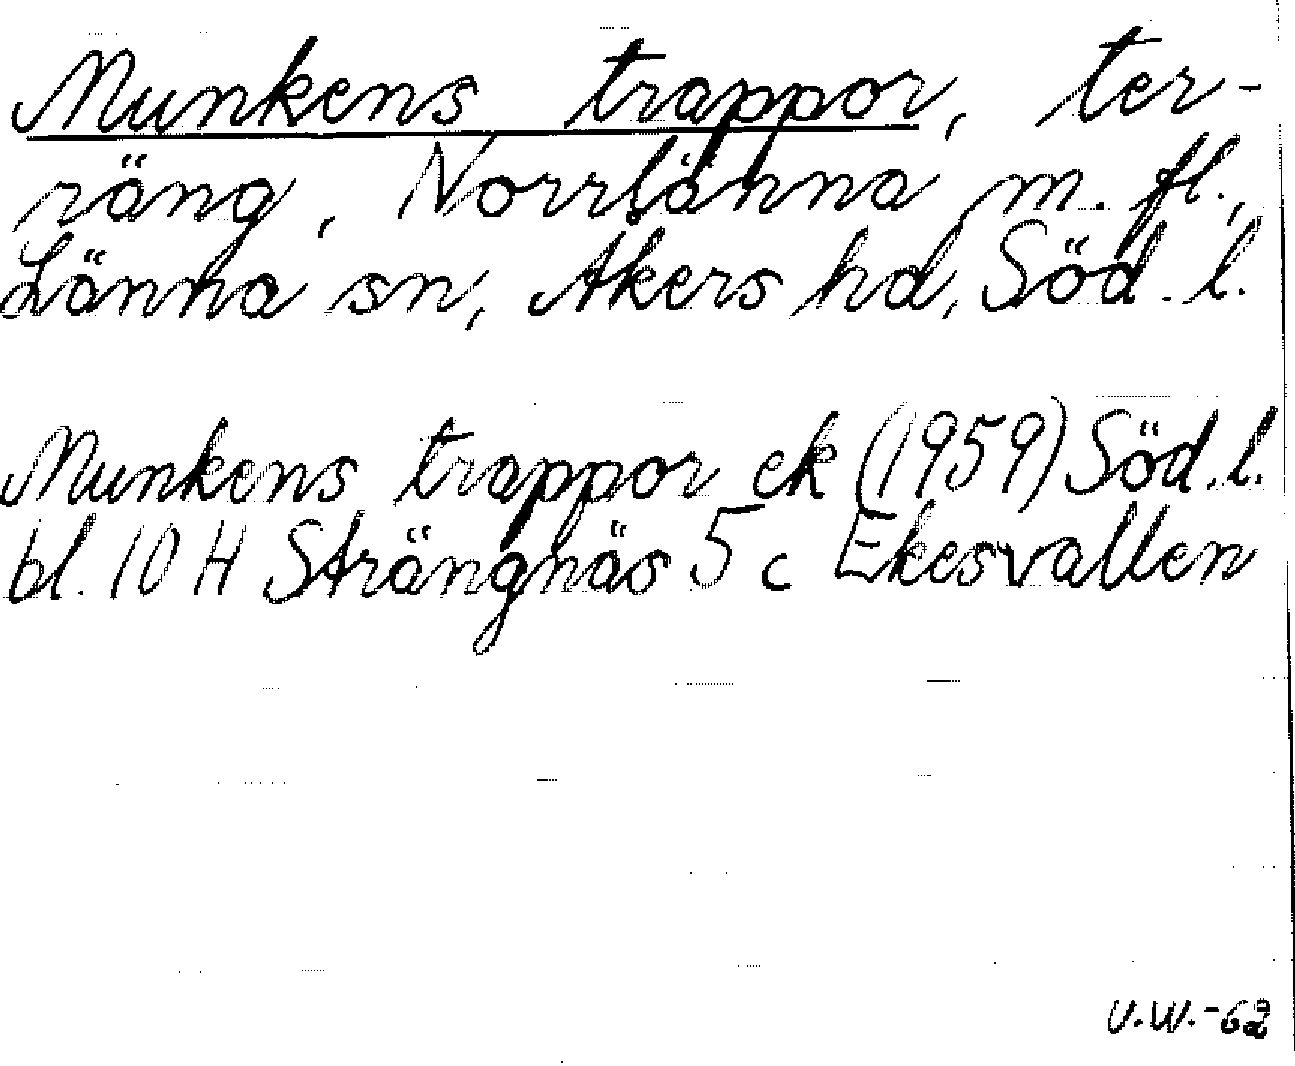 Munkens trappor, ter-
räng, Norrlänna m. fl.,
Länna sn, Åkers hd, Söd. l.
Munkens trappor ek (1959) Söd. l.
bl. 10 H Strängnäs 5 c Ekesvallen
V.W.-62